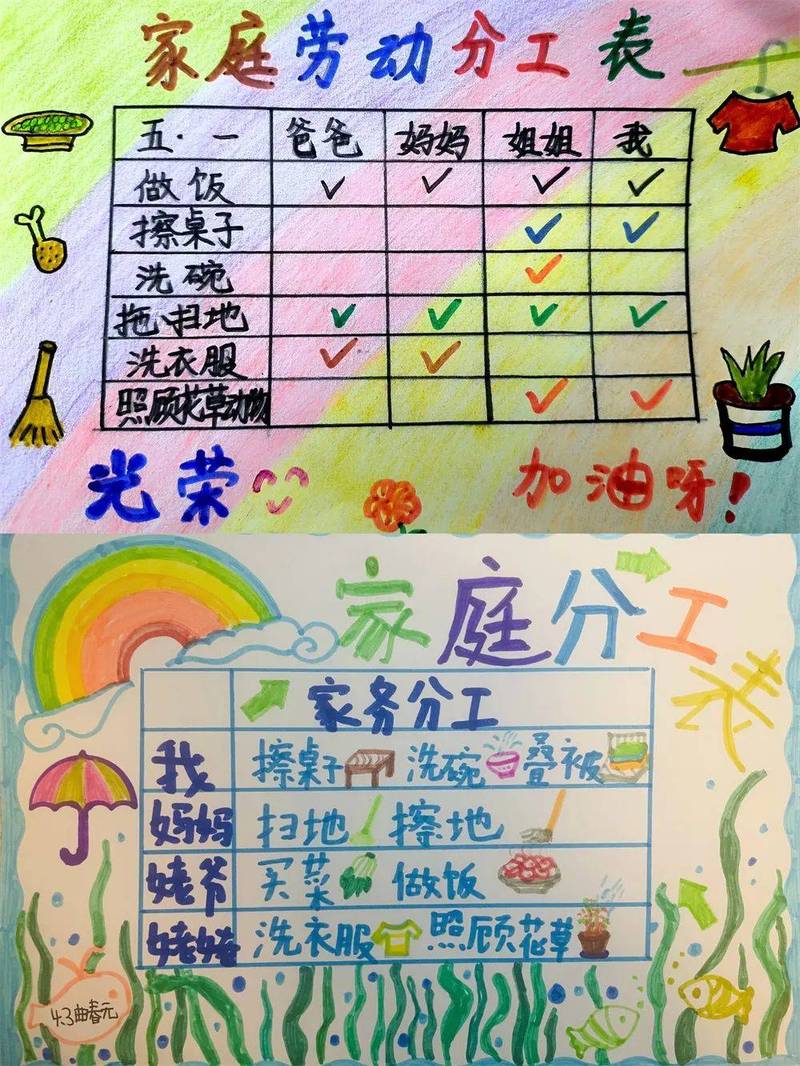 家庭劳动分工表
五·一 爸爸 妈妈 姐姐 我
做饭 ✓ ✓ ✓ ✓
擦桌子 ✓ ✓
洗碗 ✓
拖·扫地 ✓ ✓ ✓ ✓
洗衣服 ✓ ✓
照顾花草动物 ✓ ✓
光荣 加油呀!
家庭分工表
家务分工
我 擦桌子 洗碗 叠被
妈妈 扫地 擦地
姥爷 买菜 做饭
姥姥 洗衣服 照顾花草
4.3曲春元